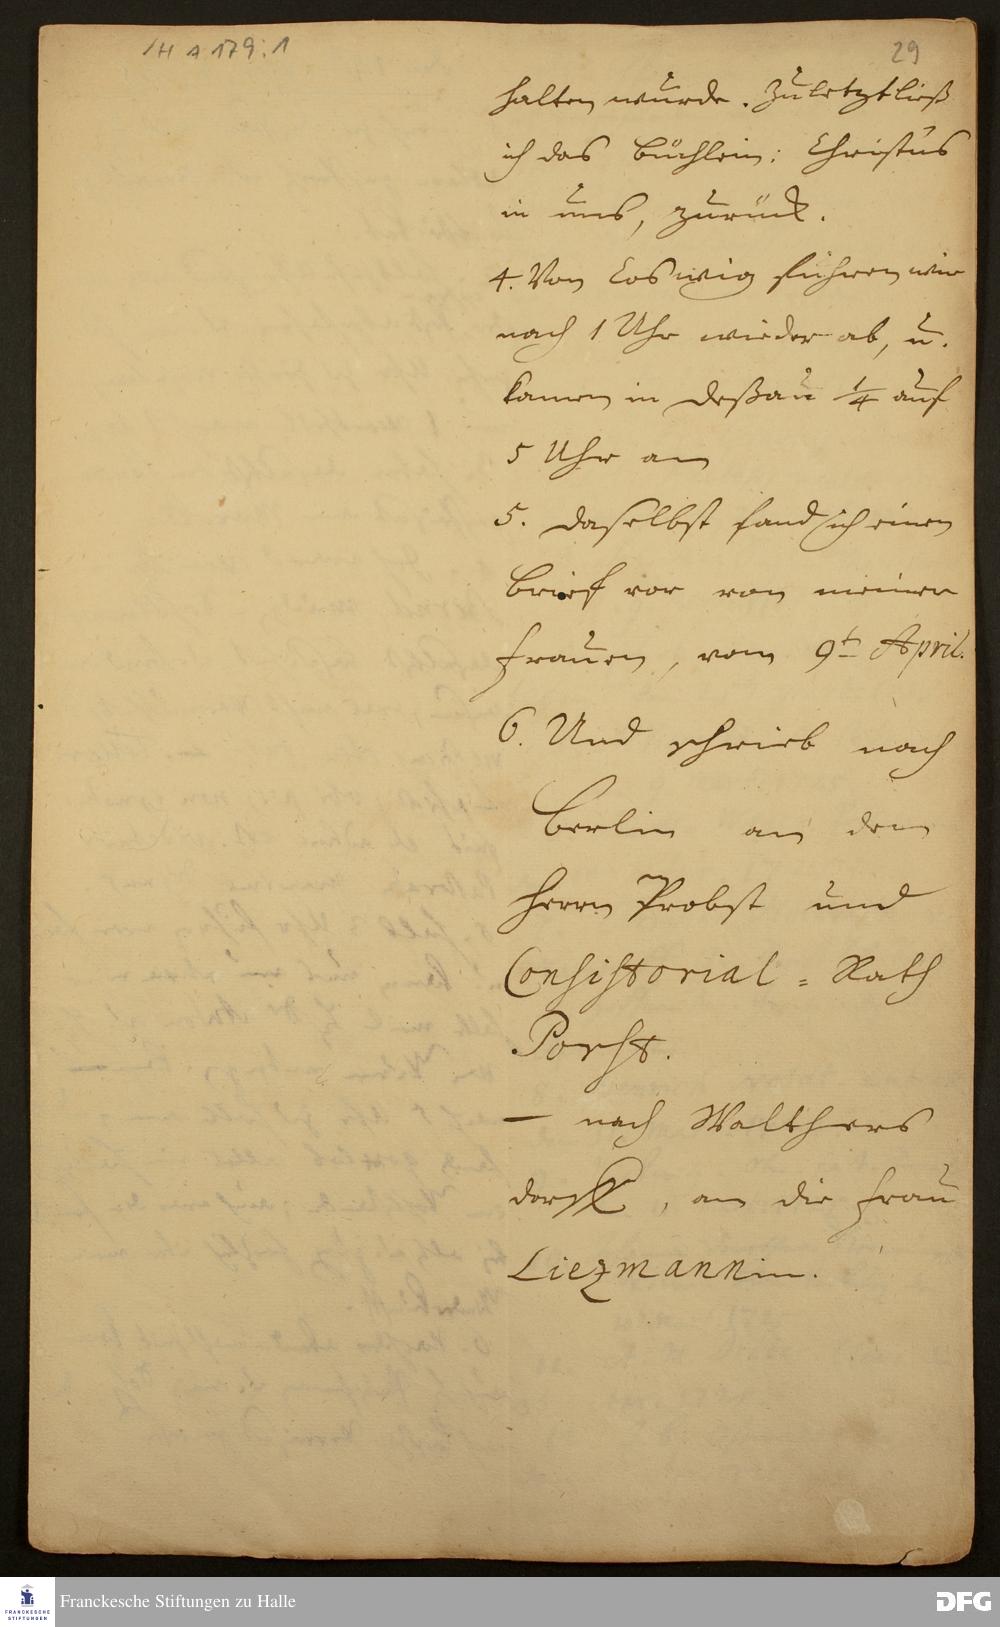 /H A 179:1
29
halten wurde. Zuletzt ließ
ich das Büchlein: Christus
in uns, zurück.
4. Von Coswig fuhren wir
nach 1 Uhr wieder ab, u.
kamen in Deßau 1/4 auf
5 Uhr an
5. daselbst fand ich einen
Brief vor von meiner
Frauen, vom 9t April.
6. Und schrieb nach
Berlin an den
Herrn Probst und
Consistorial = Rath
Porst.
— nach Walthers
dorff, an die Frau
Liezmannin.
FRANCKESCHE
STIFTUNGEN
Franckesche Stiftungen zu Halle
DFG